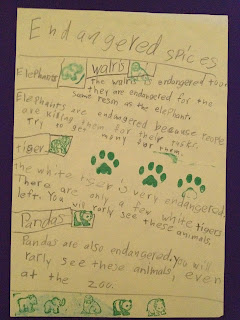 Endangered spices
Elephants
Walris
The walris is endangered too
they are endangered for the
same resin as the elephants
Elephants are endangered because people
are killing them for their tusks
Try to get money for them
tiger
the white tiger is very endangered,
There are only a few white tigers
left. You will rarly see these animals
Pandas
Pandas are also endangered, you will
rarly see these animals, even
at the zoo.